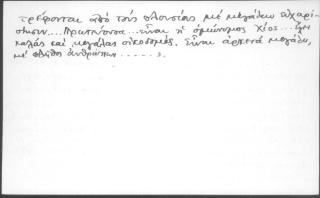 τρέφονται ἀπό τούς πλουσίους μέ μεγάλην εὐχαρί-
στησιν.... Πρωτεύουσα... εἶναι ἡ ὁμώνυμος Χίος... ἔχει
καλάς καί μεγάλας οἰκοδομάς. Εἶναι ἀρκετά μεγάλη,
μέ πλῆθος ἀνθρώπων......